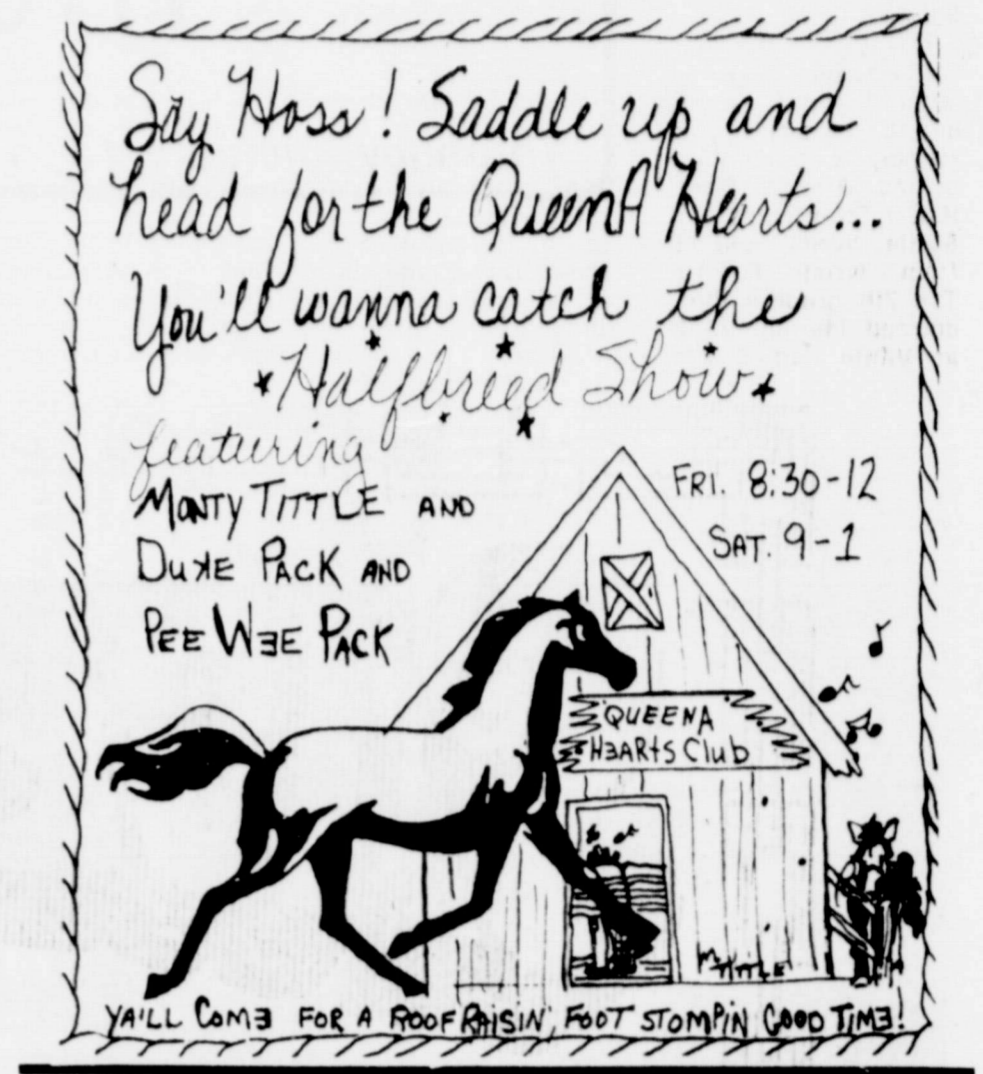 Say Hoss! Saddle up and
head for the QueenA Hearts...
You'll wanna catch the
Halfbreed Show
featuring
MONTY TITTLE AND
DUKE PACK AND
PEE WEE PACK
FRI. 8:30-12
SAT. 9-1
QUEENA
HEARTS Club
M TITTLE
YA'LL COME FOR A ROOF RAISIN', FOOT STOMPIN GOOD TIME!